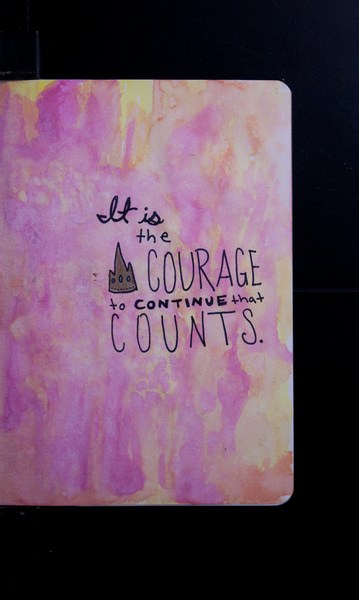 It is
the
COURAGE
to CONTINUE that
COUNTS.